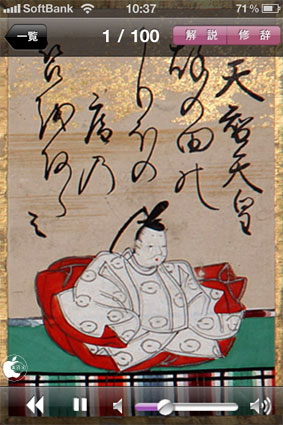 SoftBank 10:37 71%
一覧 1 / 100 解説 修辞
天智天皇
秋の田の
かりほの
庵乃